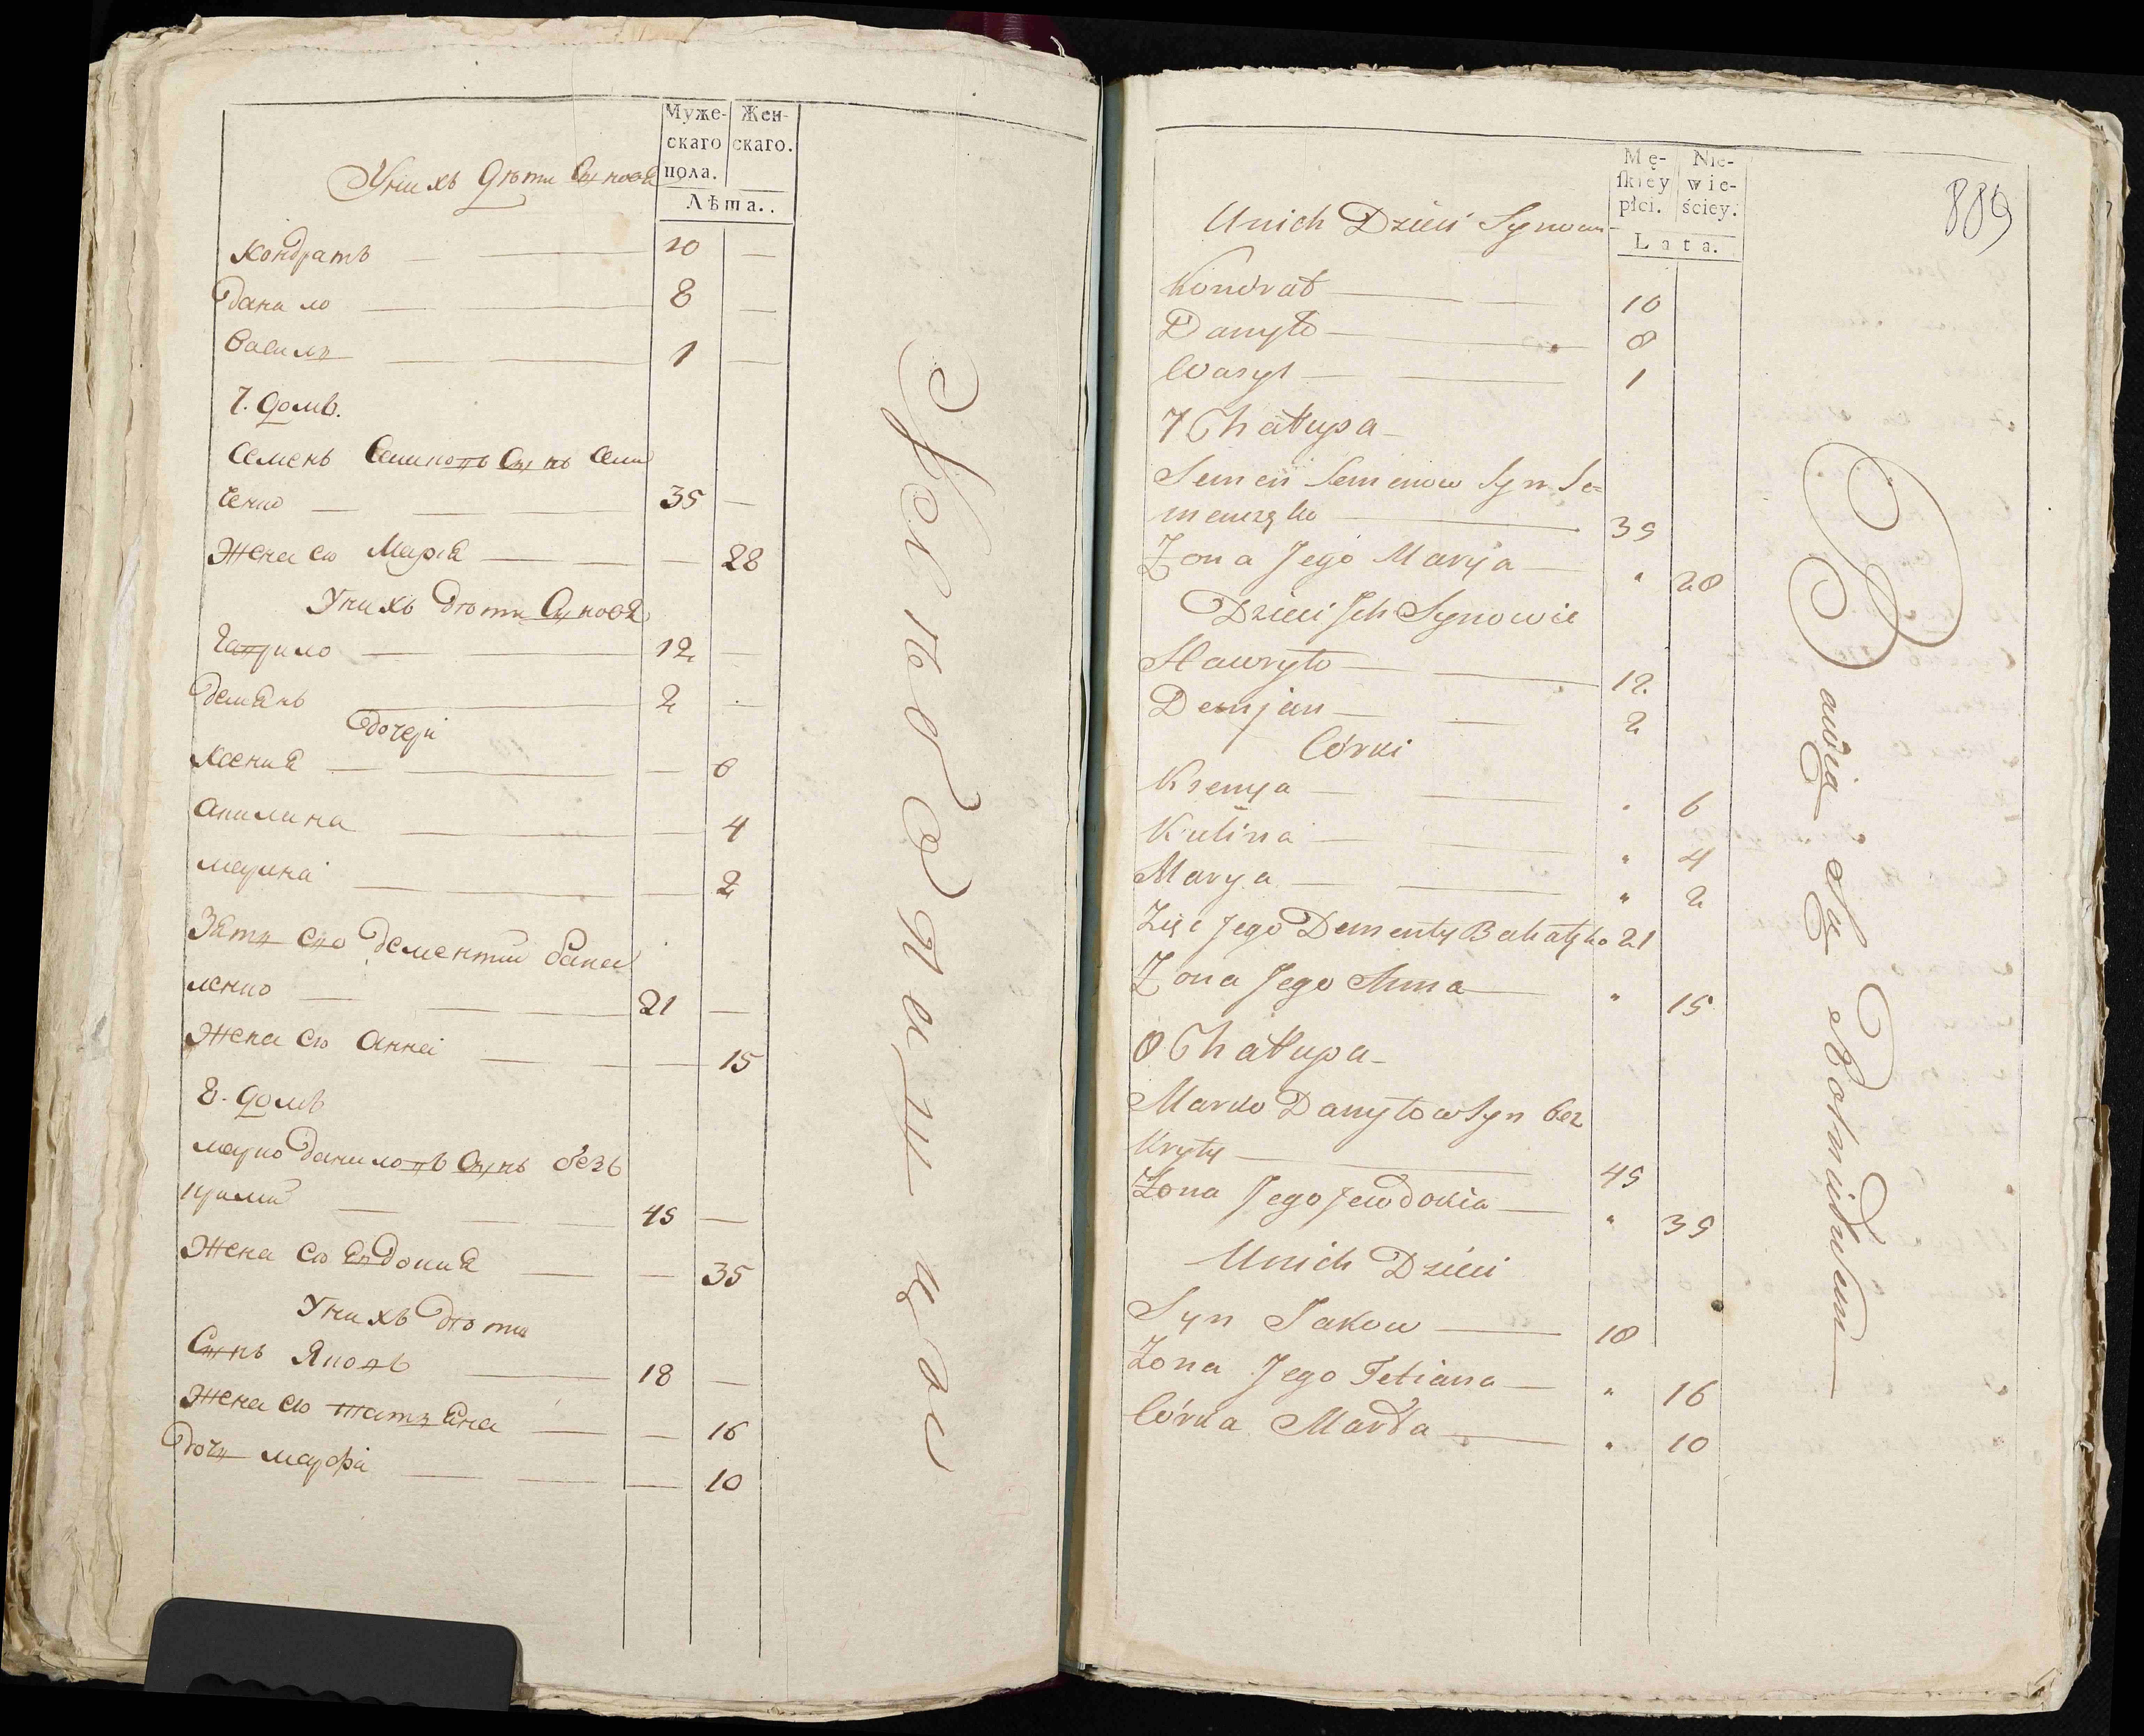 Муже-
скаго
пола.
Жен-
скаго.
Лѣта..
Унихъ Дѣти Сынове
Кондратъ 10
Данило 8
Василь 1
7. Домъ.
Семенъ Семиновъ Сынъ Семи
ченко 35
Жена ево Марія 28
Унихъ Дѣти Сыновя
Гаврило 12
Демянъ 2
Дочери
Ксения 6
Акилина 4
Марина 2
Зять ево Дементий Бака
ленко 21
Жена ево Анна 15
8. Домъ
Марко Даниловъ Сынъ безъ
крилий 45
Жена ево Евдокия 35
Унихъ Дѣти
Сынъ Яковъ 18
Жена ево Татьяна 16
Дочь Марфа 10
889
Mę-
skiey
płci.
Nie-
wie-
ściey.
Lata.
Unich Dzieci Synowie
Kondrat 10
Danyło 8
Wasyl 1
7 Chałłupa
Semen Semenow Syn Se=
menczęko 35
Zona Jego Maryja " 28
Dzieci Ich Synowie
Hawryło 12
Demjan 2
Córki
Ksenya " 6
Kulina " 4
Marya " 2
Zięć Jego Dementy Bakalęko 21
Zona Jego Anna " 15
8 Chałłupa
Marko Danyłow Syn bez
Kryły 45
Zona Jego Jewdokia " 35
Unich Dzieci
Syn Jakow 18
Zona Jego Tetiana " 16
Córka Marta " 10